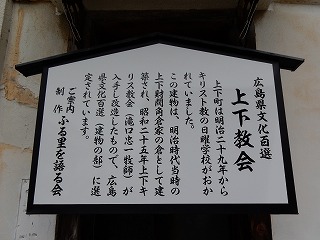 広島県文化百選
上下教会
上下町は明治二十九年から
キリスト教の日曜学校がおか
れていました。
この建物は、明治時代当時の
上下財閥角倉家の倉として建
築され、昭和二十五年上下キ
リス教会(滝口忠一牧師)が
入手し改造したもので、広島
県文化百選(建物の部)に選
定されています。
ご案内
制作 ふる里を語る会